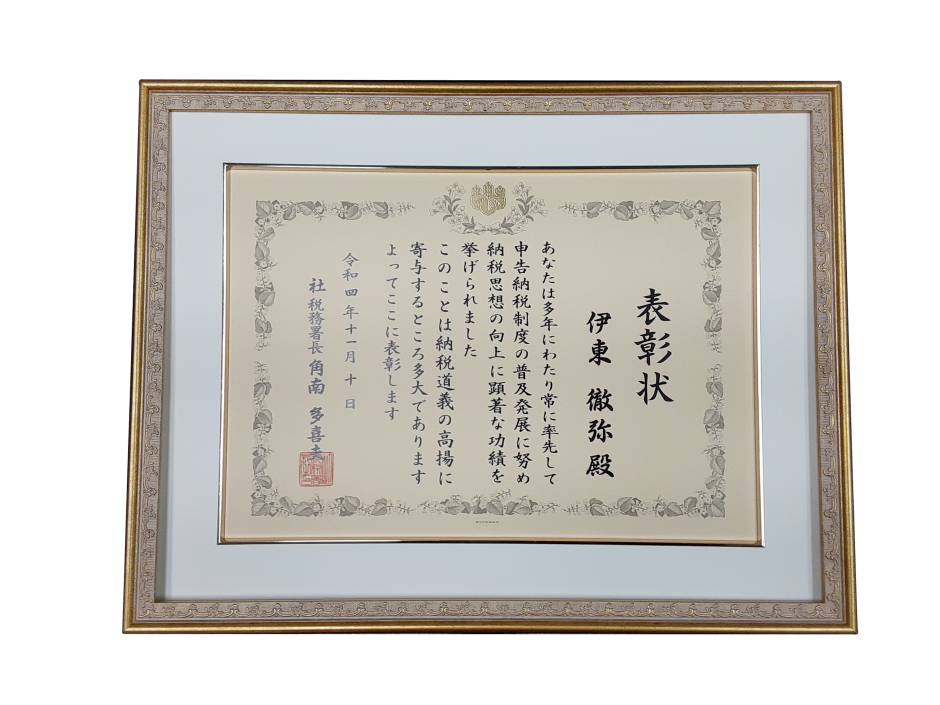 表彰状
伊東 徹弥 殿
あなたは多年にわたり常に率先して
申告納税制度の普及発展に努め
納税思想の向上に顕著な功績を
挙げられました
このことは納税道義の高揚に
寄与するところ多大であります
よってここに表彰します
令和四年十一月十日
社税務署長 角南 多喜